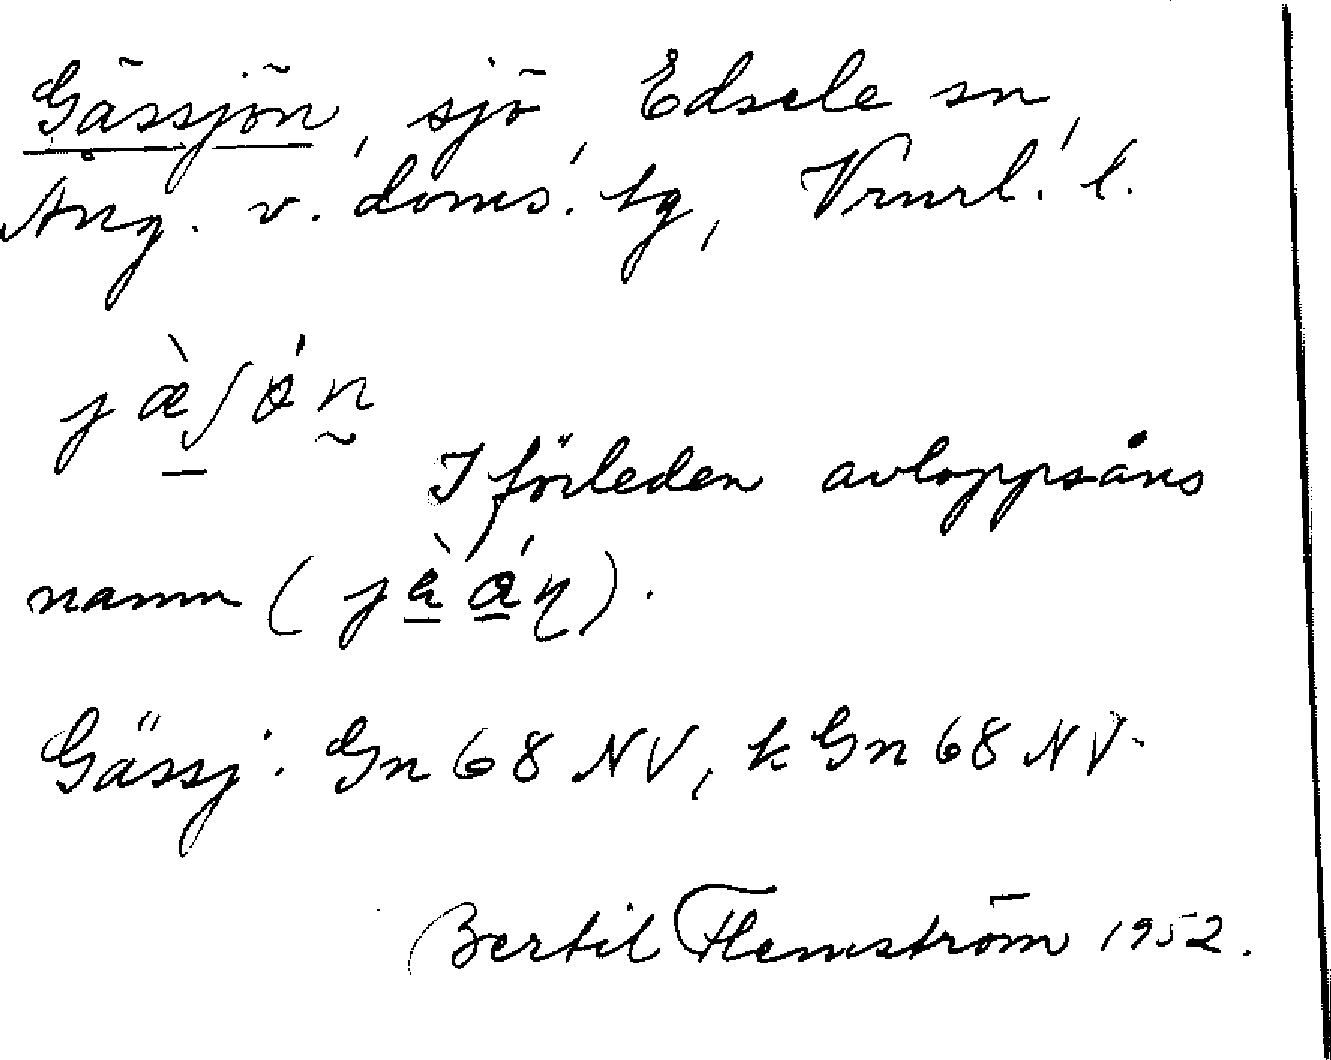 Gässjön, sjö, Edsele sn,
Ång. v. doms. tg, Vrnrl. l.
jæ̀ʃǿn
I förleden avloppsåns
namn (
Gässj. Gn 68 NV, k Gn 68 NV
Bertil Flemström 1952.